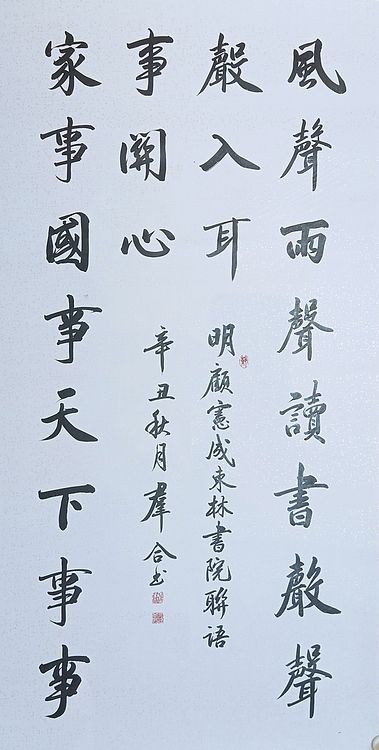 風聲雨聲讀書聲聲
聲入耳
明顧憲成東林書院聯語
家事國事天下事事
事關心
辛丑秋月羣合书